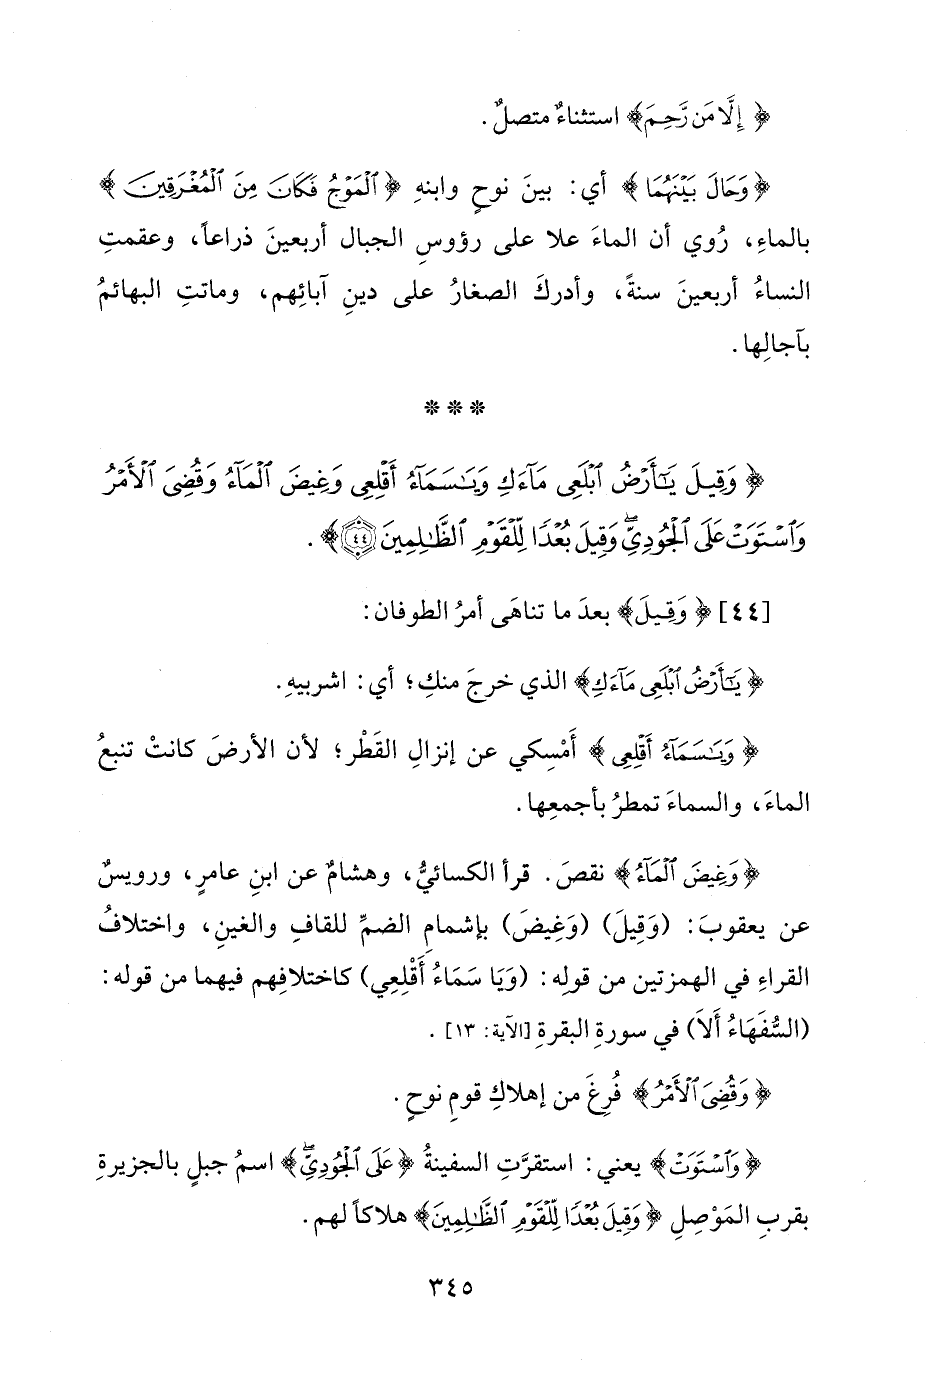 ﴿إِلَّا مَن رَّحِمَ﴾ استثناءٌ متصلٌ.
﴿وَحَالَ بَيْنَهُمَا﴾ أي: بينَ نوحٍ وابنهِ ﴿ٱلْمَوْجُ فَكَانَ مِنَ ٱلْمُغْرَقِينَ﴾
بالماءِ، رُوي أن الماءَ علا على رؤوسِ الجبال أربعينَ ذراعاً، وعقمتِ
النساءُ أربعينَ سنةً، وأدركَ الصغارُ على دينِ آبائِهم، وماتتِ البهائمُ
بآجالِها.
* * *
﴿وَقِيلَ يَٰٓأَرْضُ ٱبْلَعِى مَآءَكِ وَيَٰسَمَآءُ أَقْلِعِى وَغِيضَ ٱلْمَآءُ وَقُضِىَ ٱلْأَمْرُ
وَٱسْتَوَتْ عَلَى ٱلْجُودِىِّۖ وَقِيلَ بُعْدًا لِّلْقَوْمِ ٱلظَّٰلِمِينَ ٤٤﴾.
[٤٤] ﴿وَقِيلَ﴾ بعدَ ما تناهَى أمرُ الطوفان:
﴿يَٰٓأَرْضُ ٱبْلَعِى مَآءَكِ﴾ الذي خرجَ منكِ؛ أي: اشربيهِ.
﴿وَيَٰسَمَآءُ أَقْلِعِى﴾ أَمْسِكي عن إنزالِ القَطْر؛ لأن الأرضَ كانتْ تنبعُ
الماءَ، والسماءَ تمطرُ بأجمعِها.
﴿وَغِيضَ ٱلْمَآءُ﴾ نقصَ. قرأ الكسائيُّ، وهشامٌ عن ابنِ عامرٍ، ورويسٌ
عن يعقوبَ: (وَقِيلَ) (وَغِيضَ) بإشمامِ الضمِّ للقافِ والغينِ، واختلافُ
القراءِ في الهمزتين من قولِه: (وَيَا سَمَاءُ أَقْلِعِي) كاختلافِهم فيهما من قوله:
(السُّفَهَاءُ أَلاَ) في سورةِ البقرةِ [الآية: ١٣].
﴿وَقُضِىَ ٱلْأَمْرُ﴾ فُرِغَ من إهلاكِ قومِ نوحٍ.
﴿وَٱسْتَوَتْ﴾ يعني: استقرَّتِ السفينةُ ﴿عَلَى ٱلْجُودِىِّۖ﴾ اسمُ جبلٍ بالجزيرةِ
بقربِ المَوْصِلِ ﴿وَقِيلَ بُعْدًا لِّلْقَوْمِ ٱلظَّٰلِمِينَ﴾ هلاكاً لهم.
٣٤٥